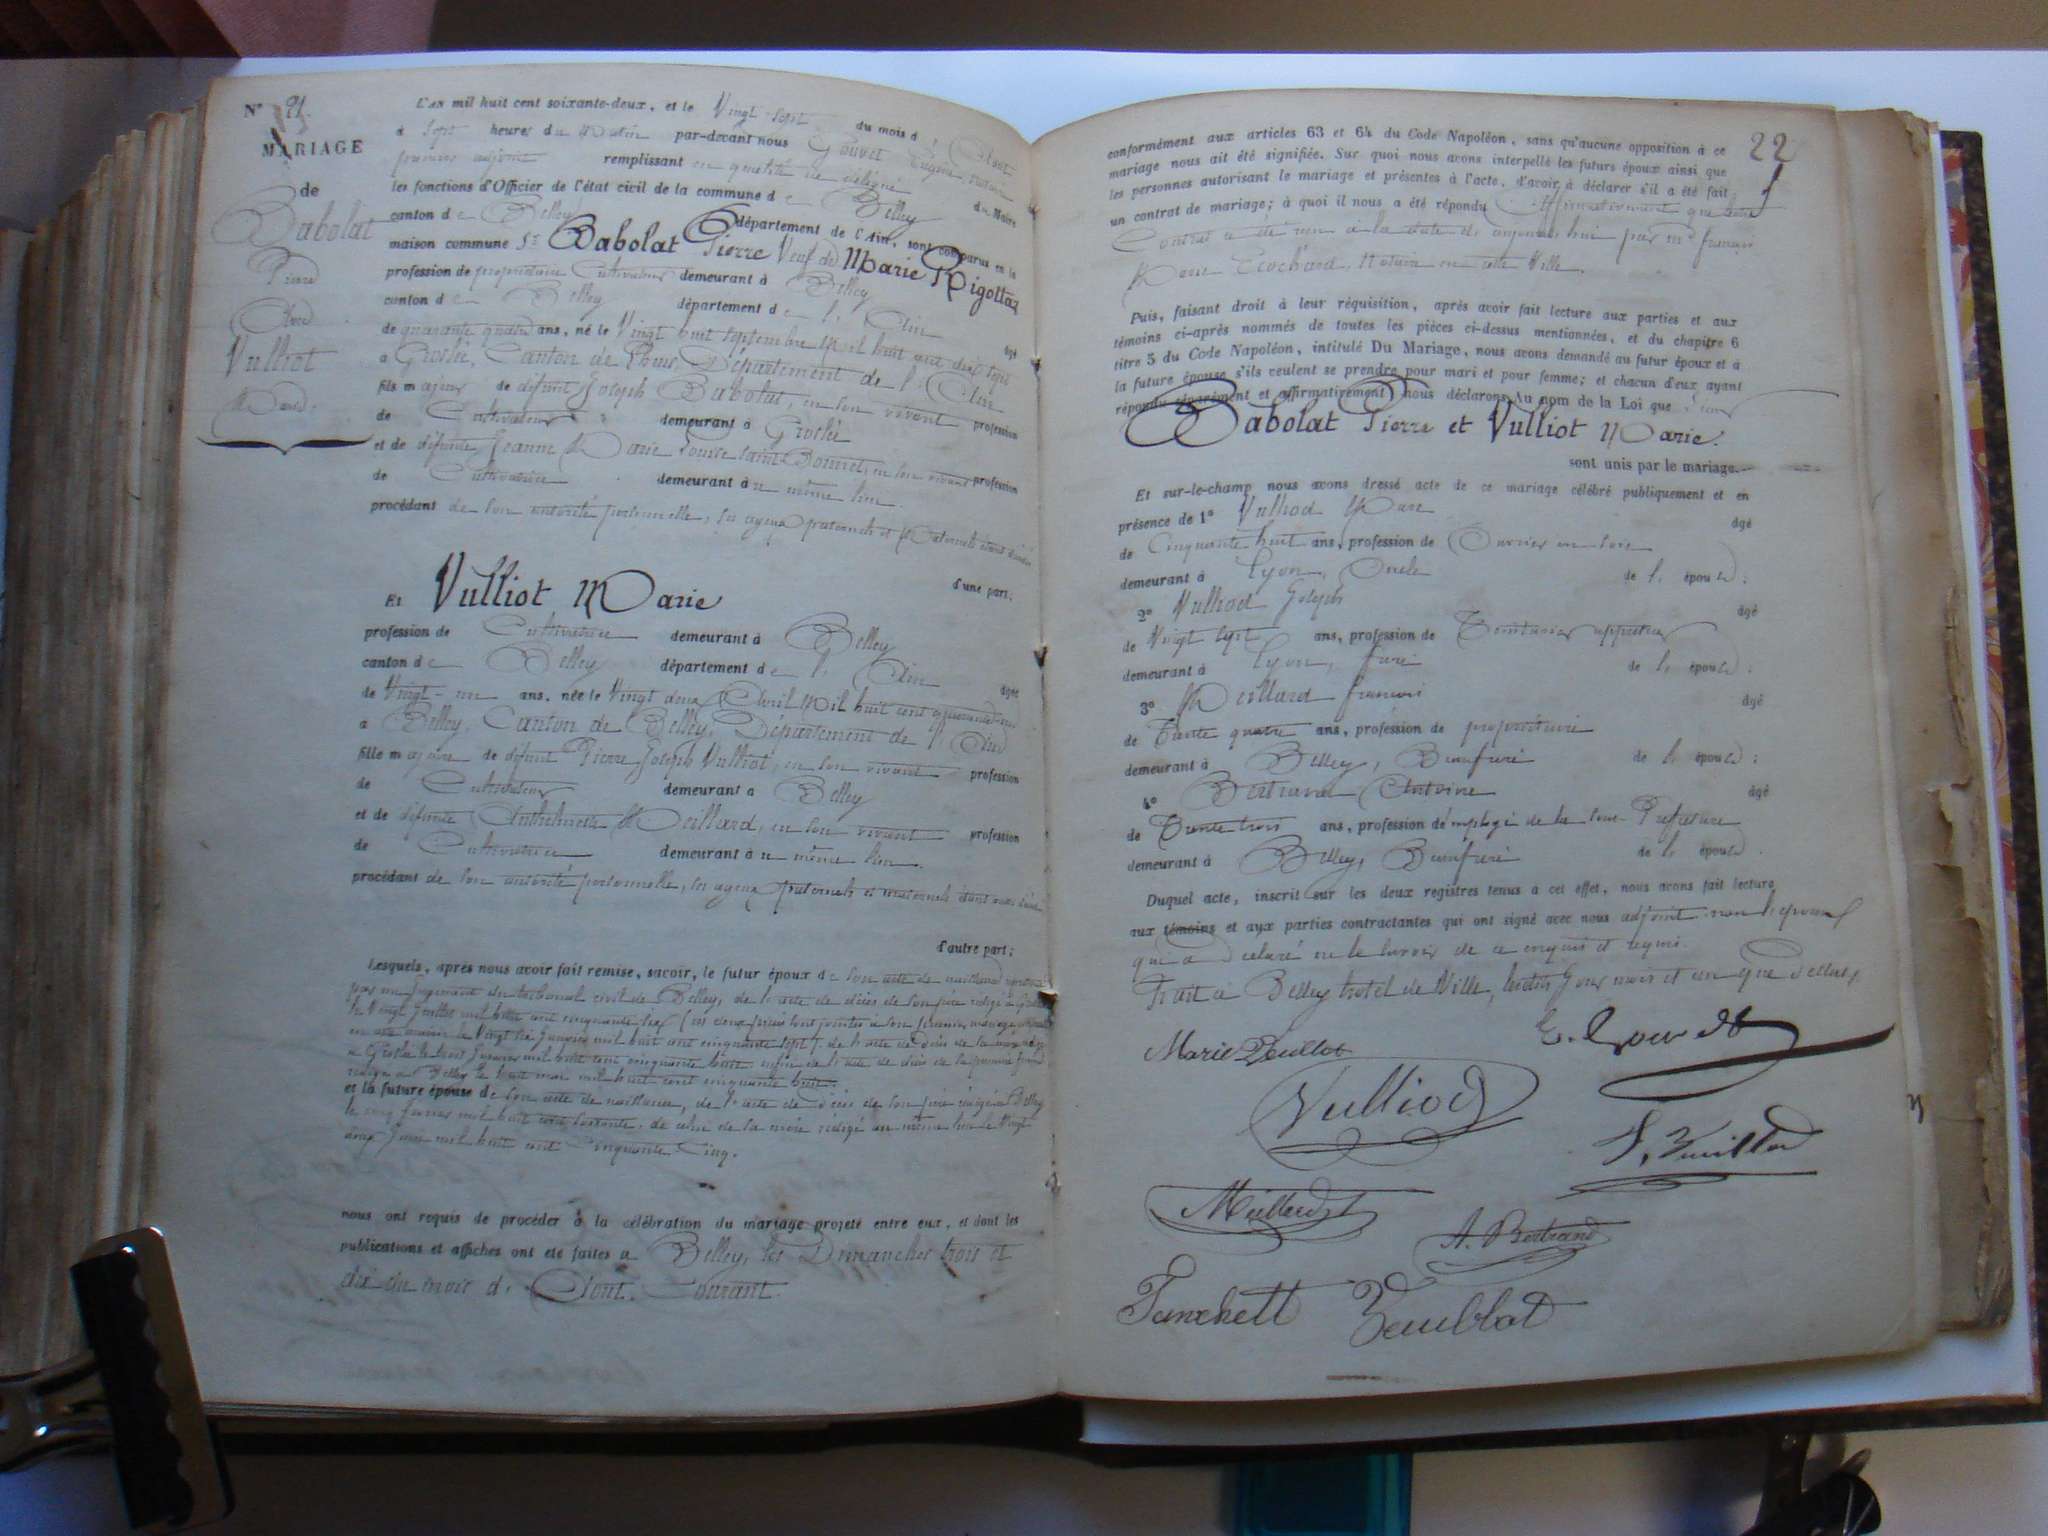 N° 21.
MARIAGE
de
Babolat
Pierre
Avec
Vulliot
Marie.
L'AN mil huit cent soixante-deux, et le Vingt-Sept du mois d' Août
à Sept heures du Matin par-devant nous Gouvet Eugène, Notaire
premier adjoint remplissant en qualité de délégué
les fonctions d'Officier de l'état civil de la commune de Belley du Maire
canton de Belley département de l'Ain, sont comparus en la
maison commune Sr Babolat Pierre Veuf de Marie Rigottaz
profession de propriétaire Cultivateur demeurant à Belley
canton de Belley département de l' Ain âgé
de quarante quatre ans, né le Vingt huit septembre Mil huit cent dix sept
à Groslée, Canton de Lhuis, Département de l' Ain
fils majeur de défunt Joseph Babolat, en son vivant profession
de Cultivateur demeurant à Groslée
et de défunte Jeanne Marie Louise Saint-Bonnet, en son vivant profession
de Cultivatrice demeurant au même lieu.
procédant de son autorité personnelle, ses ayeux paternels et Maternels étant décédés
d'une part;
Et Vulliot Marie
profession de Cultivatrice demeurant à Belley
canton de Belley département de l' Ain âgée
de Vingt-un ans, née le Vingt deux Avril Mil huit cent quarante-un
à Belley, Canton de Belley, Département de l' Ain
fille majeure de défunt Pierre Joseph Vulliot, en son vivant profession
de Cultivateur demeurant à Belley
et de défunte Anthelmette Meillard, en son vivant profession
de Cultivatrice demeurant au même lieu.
procédant de son autorité personnelle, ses ayeux paternels et maternels étant aussi décédés
d'autre part;
Lesquels, après nous avoir fait remise, savoir, le futur époux de son acte de naissance
par un jugement du tribunal civil de Belley, de l'acte de décès de son père rédigé à Groslée
le Vingt Juillet mil huit cent cinquante six (ces deux pièces sont jointes à son premier mariage
en cette mairie le Vingt six Janvier mil huit cent cinquante sept), de l'acte de décès de sa mère
à Groslée le trois Janvier mil huit cent cinquante huit, enfin de l'acte de décès de sa première femme
rédigé à Belley le huit mai mil huit cent cinquante huit.
et la future épouse de son acte de naissance, de l'acte de décès de son père rédigé à Belley
le cinq février mil huit cent soixante, de celui de sa mère rédigé au même lieu le Vingt
deux Juin mil huit cent Cinquante Cinq.
nous ont requis de procéder à la célébration du mariage projeté entre eux, et dont les
publications et affiches ont été faites à Belley, les Dimanches trois et
dix du mois d' Août Courant.
22
conformément aux articles 63 et 64 du Code Napoléon, sans qu'aucune opposition à ce
mariage nous ait été signifiée. Sur quoi nous avons interpellé les futurs époux ainsi que
les personnes autorisant le mariage et présentes à l'acte, d'avoir à déclarer s'il a été fait
un contrat de mariage; à quoi il nous a été répondu Affirmativement que
Contrat a été reçu à la date d'aujourd'hui par Me François
Marie Trochard, Notaire en cette Ville.
Puis, faisant droit à leur réquisition, après avoir fait lecture aux parties et aux
témoins ci-après nommés de toutes les pièces ci-dessus mentionnées, et du chapitre 6
titre 5 du Code Napoléon, intitulé Du Mariage, nous avons demandé au futur époux et à
la future épouse s'ils veulent se prendre pour mari et pour femme; et chacun d'eux ayant
répondu séparément et affirmativement nous déclarons Au nom de la Loi que
Babolat Pierre et Vulliot Marie.
sont unis par le mariage.
Et sur-le-champ nous avons dressé acte de ce mariage célébré publiquement et en
présence de 1° Vulliod Marc âgé
de Cinquante huit ans, profession de Ouvrier en soie
demeurant à Lyon, Oncle de l' épouse;
2° Vulliod Joseph âgé
de Vingt sept ans, profession de Teinturier apprêteur
demeurant à Lyon, frère de l' épouse;
3° Meillard François âgé
de Trente quatre ans, profession de propriétaire
demeurant à Belley, Beaufrère de l' épouse;
4° Bertrand Antoine âgé
de Trente trois ans, profession d'employé de la Sous-Préfecture
demeurant à Belley, Beaufrère de l' épouse.
Duquel acte, inscrit sur les deux registres tenus à cet effet, nous avons fait lecture
aux témoins et aux parties contractantes qui ont signé avec nous adjoint non l'époux
qui a déclaré ne le savoir de ce enquis et requis.
Fait à Belley hotel de Ville, lesdits Jour mois et an que dessus.
Marie Veuillot
E. Gouvet
Vulliod
J. Vuillod
Meillardet
A. Bertrand
Tanchett